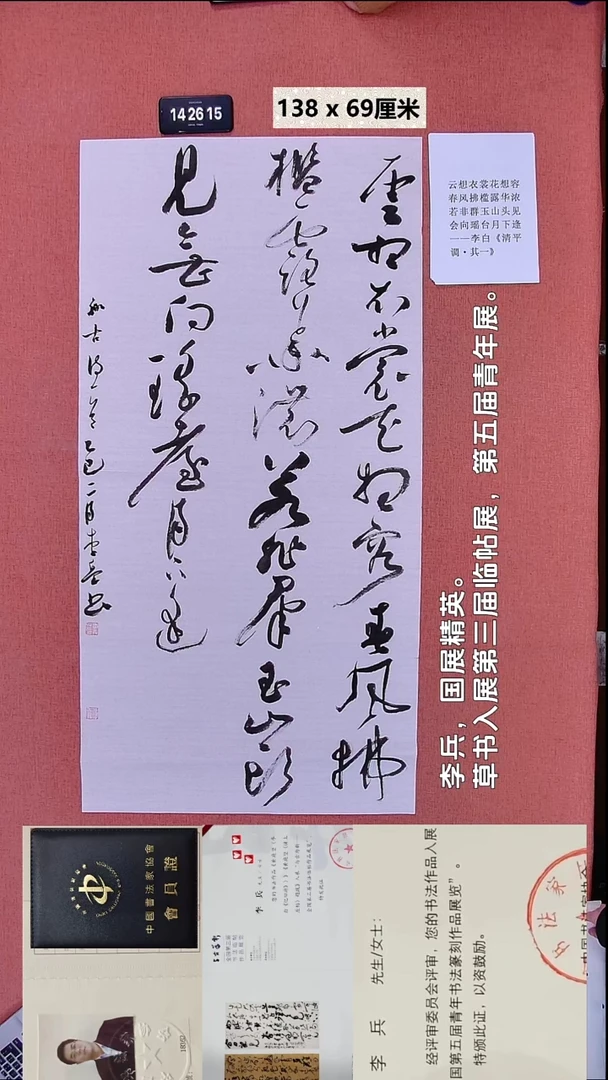 14 26 15
138 x 69厘米
云想衣裳花想容
春风拂槛露华浓
若非群玉山头见
会向瑶台月下逢
——李白《清平
调·其一》
雲想衣裳花想容春風拂
檻露華濃若非羣玉山頭
見會向瑤臺月下逢
古詩一首乙巳二月李兵書
李兵，国展精英。
草书入展第三届临帖展，第五届青年展。
中國書法家協會
會員證
李 兵
李 兵 先生/女士：
经评审委员会评审，您的书法作品入展
国第五届青年书法篆刻作品展览”。
特颁此证，以资鼓励。